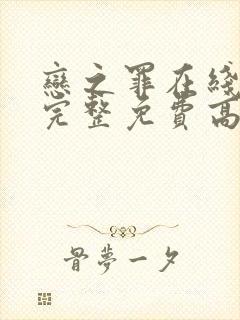 戀之罪在綫
完整免費高
骨夢一夕